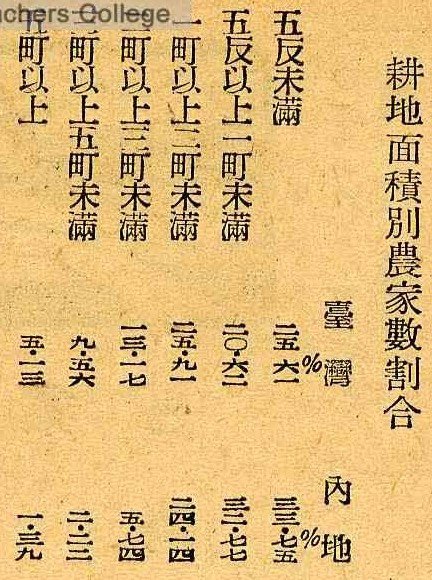 chers College
耕地面積別農家數割合
臺灣 內地
五反未滿 二五·六一% 三三·七五%
五反以上一町未滿 二〇·六二 三二·七七
一町以上二町未滿 二五·九一 二四·一四
二町以上三町未滿 一三·一七 五·七四
三町以上五町未滿 九·五六 二·二二
五町以上 五·一三 一·三九